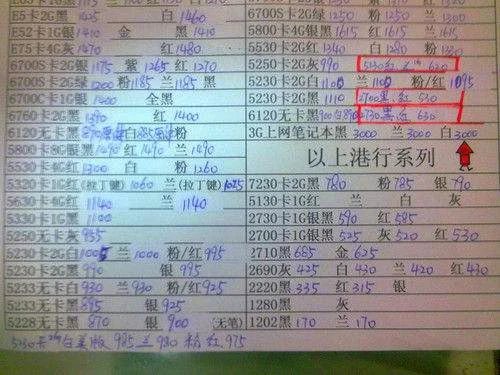 E5卡2G黑 1425 白 1460
E52卡1G银 1410 金 黑 1410
E75卡4G灰 1475 红 1480
6700S卡2G银 1175 紫 1265 红 1270
6700S卡2G绿 1200 粉 1185 兰 1185 黑
6700C卡1G银 1400 全黑
6760卡2G黑 1390 红 1400
6120无卡黑 粉
5800卡8G银黑 1490 红 1490 兰 1490
5530卡4G红 1300 白 粉 1260
5320卡1G红(拉丁键) 1060 兰(拉丁键) 1025
5630卡4G红 1140 兰 1140
5330卡1G黑 1100
5250无卡灰 935
5230卡2G白 1005 兰 1000 粉/红 995
5230卡2G黑 990 银 995
5233无卡白 930 兰 930 粉/红 925
5233无卡黑 895 银 925
5228无卡黑 870 银 900 (无笔)
5130卡2G白 985 兰 980 粉 红 975
6700S卡2G绿 1250 粉 1250 兰 1250
5800卡4G银黑 1615 红 1615 兰 1615
5530卡2G红 1340 白 1280 粉 1330
5250卡2G灰 990 5130红 兰 1G 620
5230卡2G白 1105 兰 1100 粉/红 1095
5230卡2G黑 1110 2700黑、红 530
6120无卡黑 2730黑、红 630
3G上网笔记本黑 3000 兰 3000 白 3000
以上港行系列
7230卡2G黑 780 粉 785 银 790
5130卡1G红 兰 白 灰
2730卡1G黑 590 红 585
2700卡1G银黑 525 灰 520 红 530
2710黑 685 金 625
2690灰 425 白 430 兰 420 红 430
2220黑 335 红 315 银
1280黑 灰
1202黑 170 兰 170